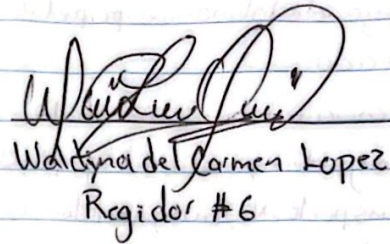 Waldyna del Carmen Lopez
Regidor #6